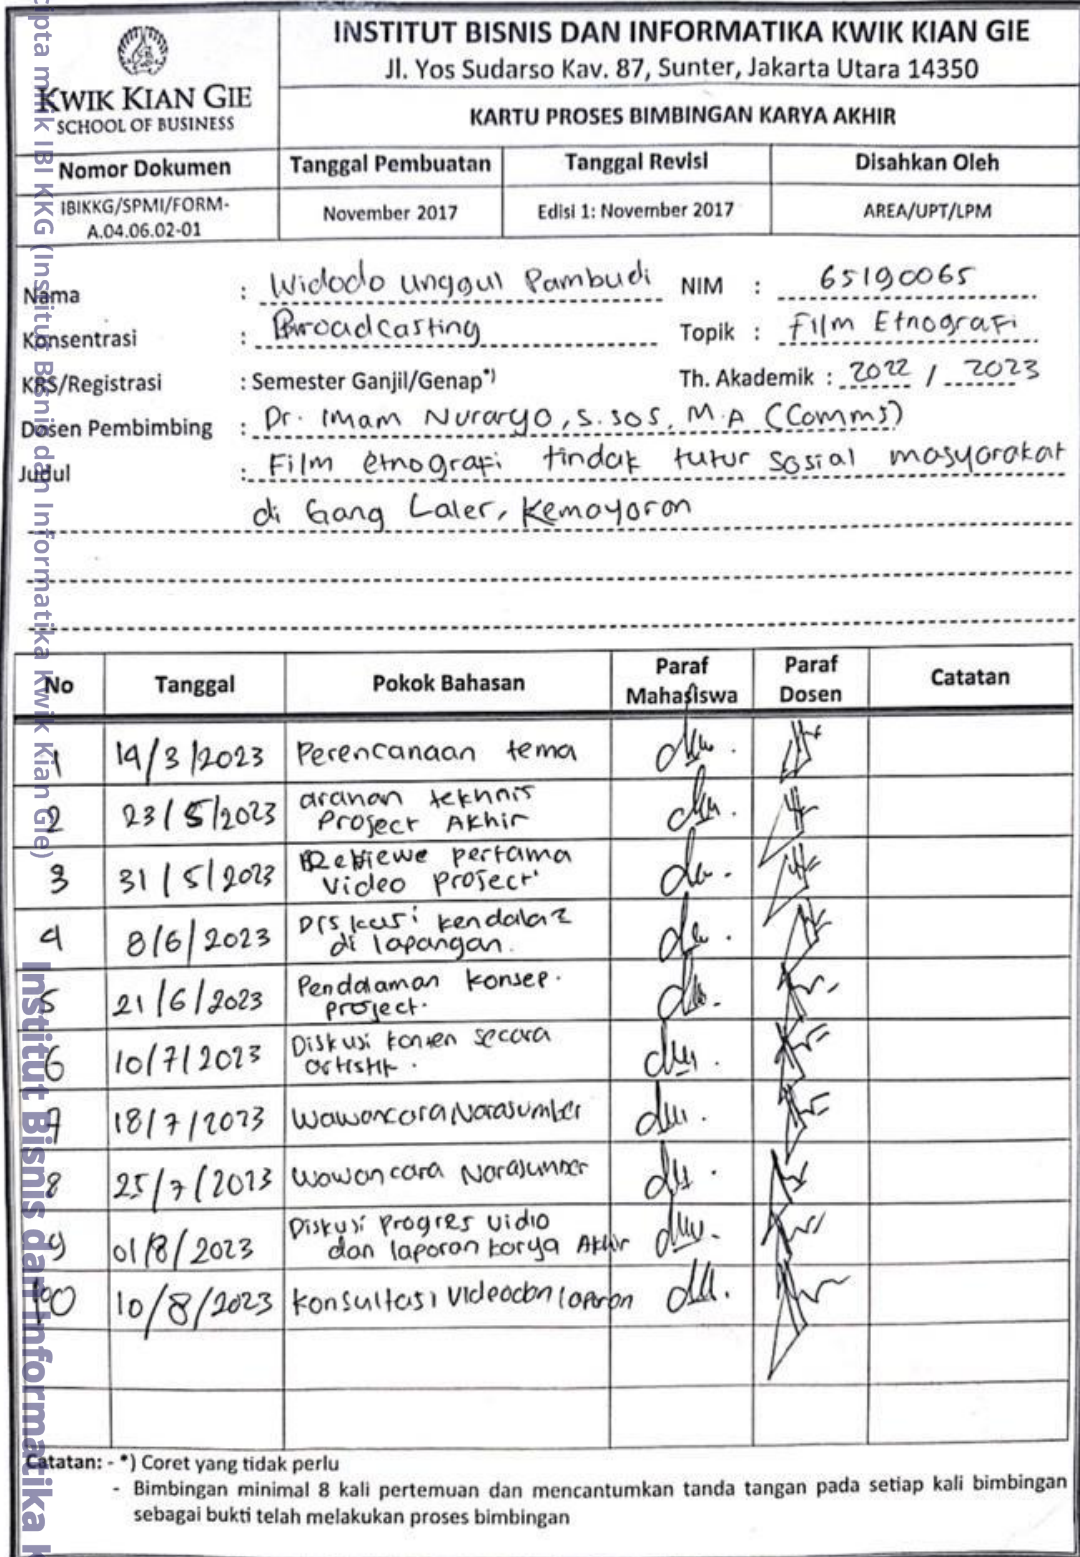 INSTITUT BISNIS DAN INFORMATIKA KWIK KIAN GIE
Jl. Yos Sudarso Kav. 87, Sunter, Jakarta Utara 14350
KWIK KIAN GIE
SCHOOL OF BUSINESS
KARTU PROSES BIMBINGAN KARYA AKHIR
Nomor Dokumen Tanggal Pembuatan Tanggal Revisi Disahkan Oleh
IBIKKG/SPMI/FORM-
A.04.06.02-01
November 2017 Edisi 1: November 2017 AREA/UPT/LPM
Nama : Widodo Unggul Pambudi NIM : 65190065
Konsentrasi : Broadcasting Topik : Film Etnografi
KRS/Registrasi : Semester Ganjil/Genap*) Th. Akademik : 2022 / 2023
Dosen Pembimbing : Dr. Imam Nuraryo, S.sos, M.A (Comms)
Judul : Film etnografi tindak tutur sosial masyarakat
di Gang Laler, Kemayoran
No Tanggal Pokok Bahasan Paraf Mahasiswa Paraf Dosen Catatan
1 14/3/2023 Perencanaan tema
2 23/5/2023 arahan tekhnis
Project Akhir
3 31/5/2023 Reviewe pertama
video project
4 8/6/2023 Diskusi kendala2
di lapangan.
5 21/6/2023 Pendalaman konsep.
project.
6 10/7/2023 Diskusi konten secara
artistik.
7 18/7/2023 Wawancara Narasumber
8 25/7/2023 Wawancara Narasumber
9 01/8/2023 Diskusi Progres vidio
dan laporan karya Akhir
10 10/8/2023 Konsultasi Video dan laporan
Catatan: - *) Coret yang tidak perlu
- Bimbingan minimal 8 kali pertemuan dan mencantumkan tanda tangan pada setiap kali bimbingan
sebagai bukti telah melakukan proses bimbingan
cipta milik IBI KKG (Institut Bisnis dan Informatika Kwik Kian Gie)
Institut Bisnis dan Informatika K